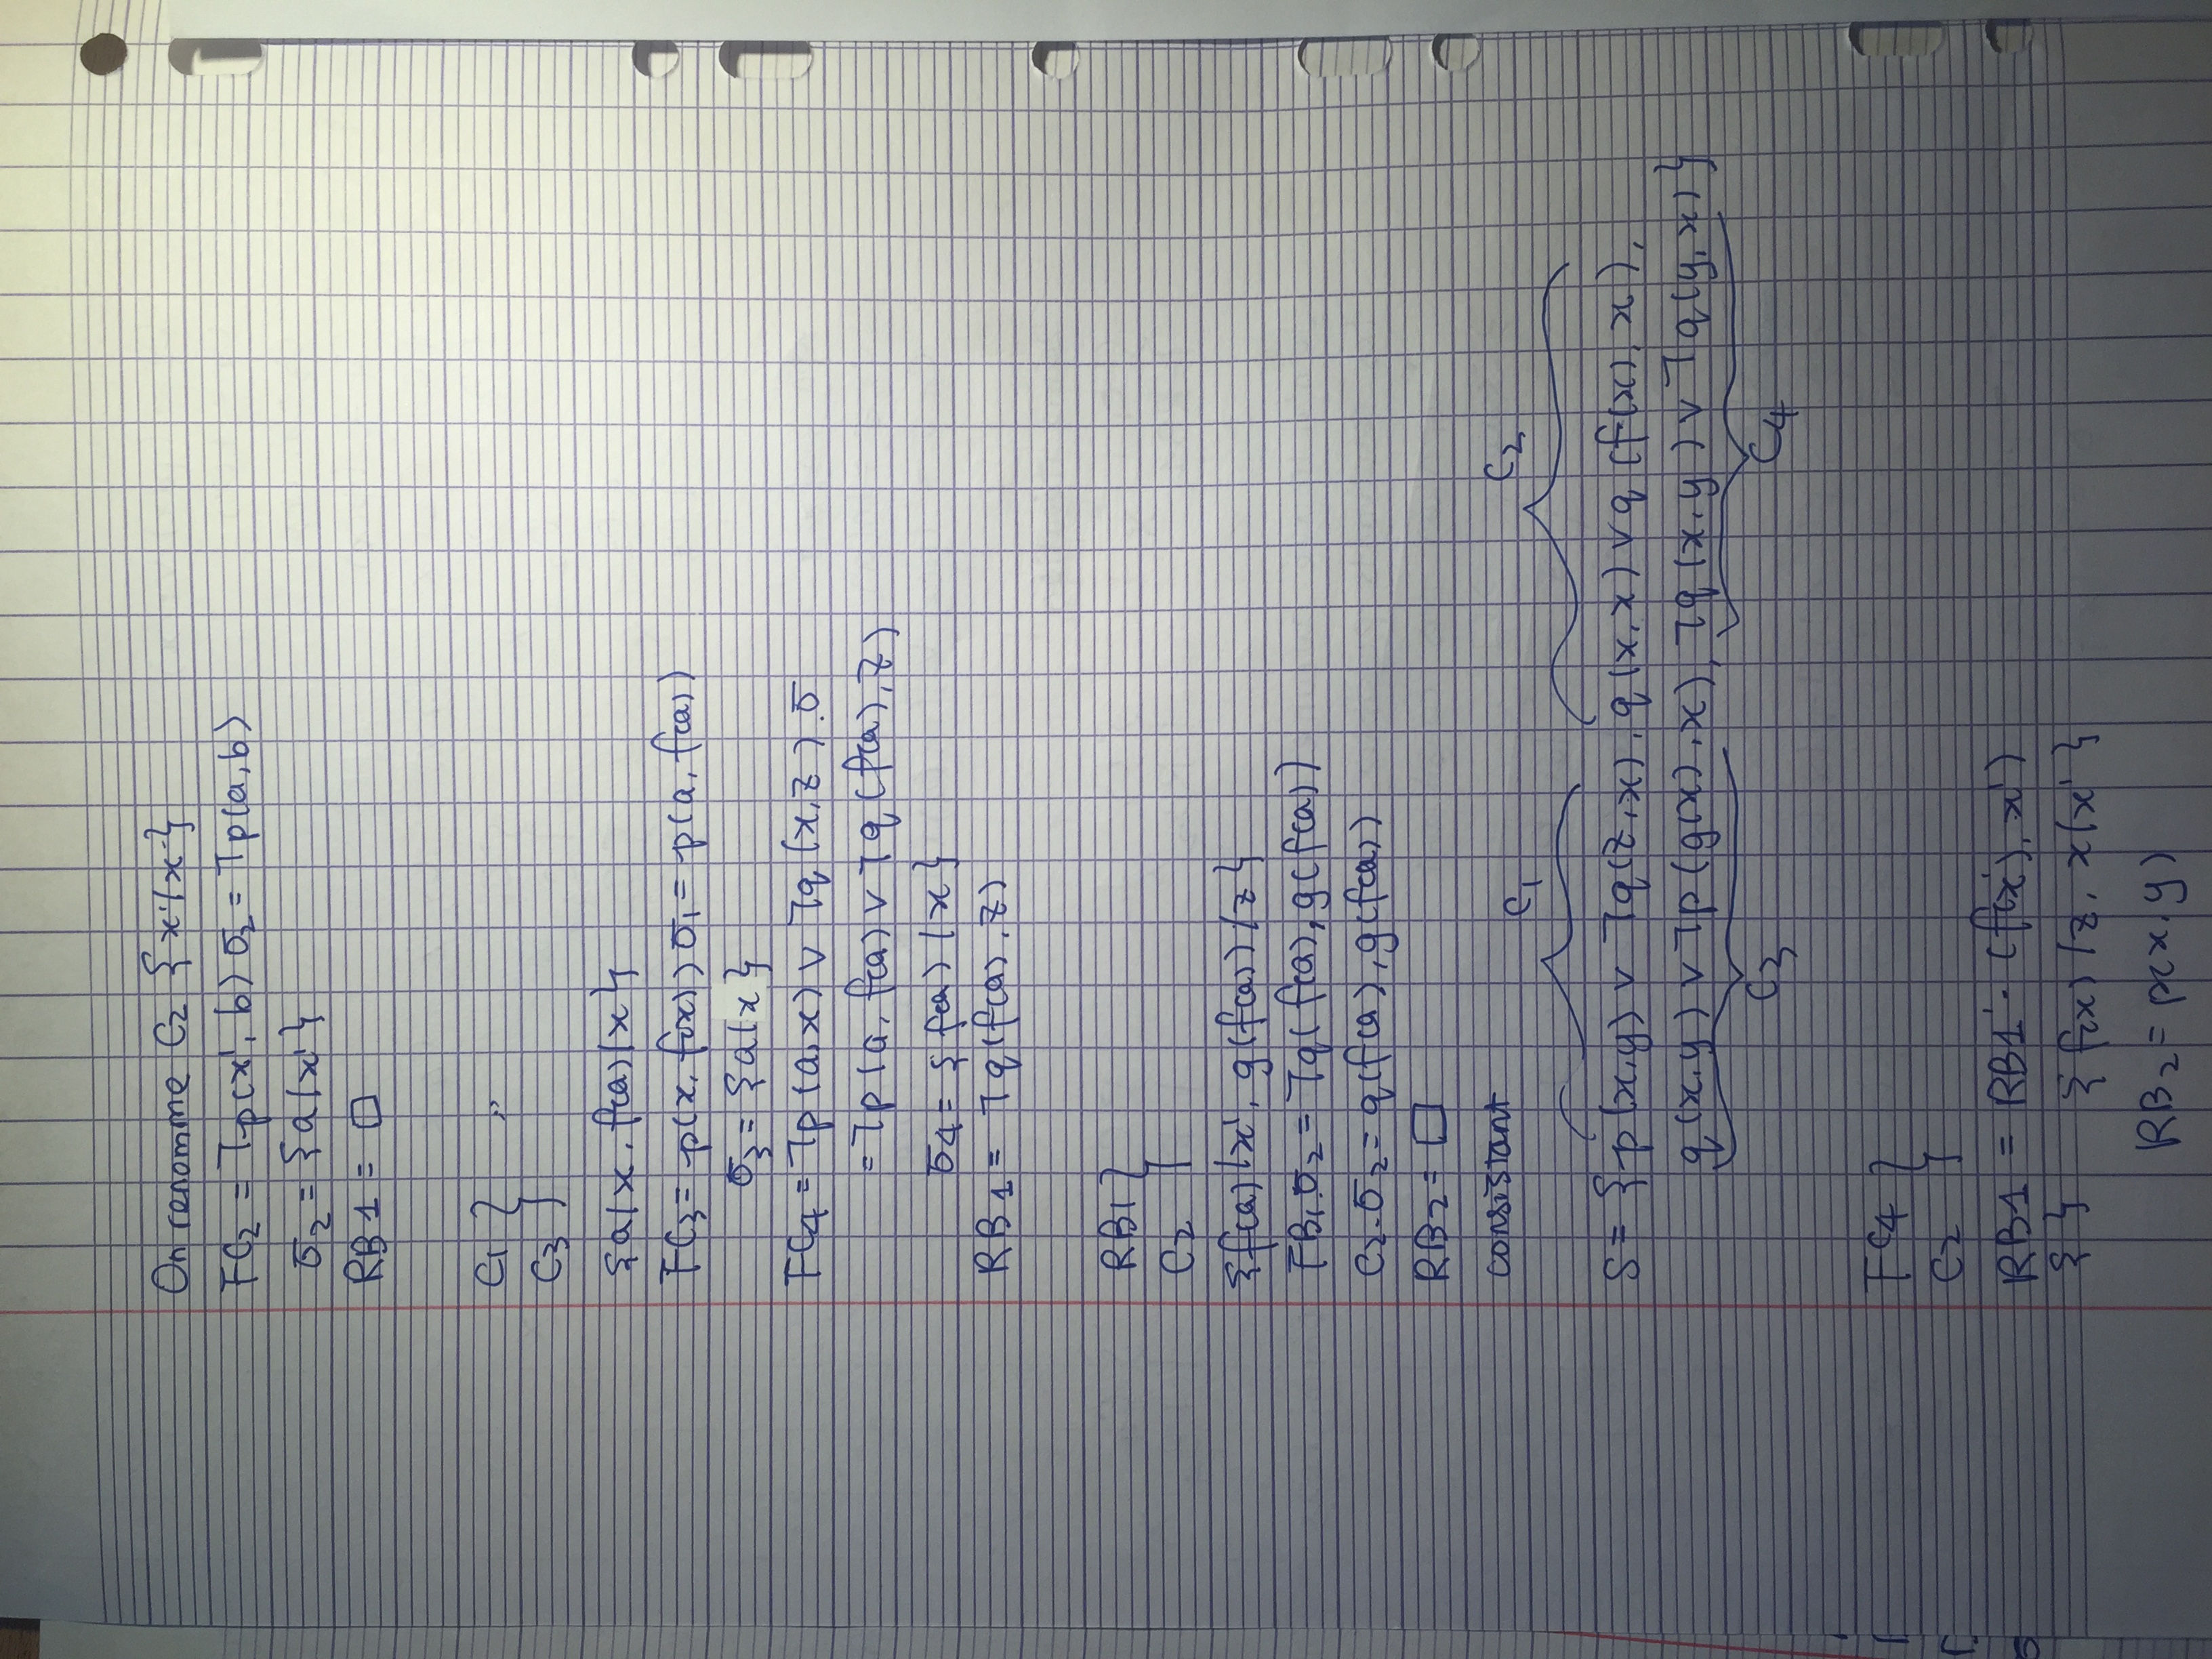 On renomme C2 {x'/x}
FC2 = ¬p(x', b) σ2 = ¬p(a, b)
σ2 = {a/x'}
RB1 = □
C1 }
C3
{a/x, f(a)/x}
FC3 = p(x, f(x)) σ1 = p(a, f(a))
σ3 = {a/x}
FC4 = ¬p(a, x) ∨ ¬q(x, z).σ
= ¬p(a, f(a) ∨ ¬q(f(a), z)
σ4 = {f(a)/x}
RB1 = ¬q(f(a), z)
RB1 }
C2
{f(a)/x', g(f(a))/z}
FB1.σ2 = ¬q(f(a), g(f(a))
C2.σ2 = q(f(a), g(f(a))
RB2 = □
consistant
C1 C2
S = {p(x,y) ∨ ¬q(z,x), q(x,x) ∨ q(f(x), x),
q(x,y) ∨ ¬p(g(x),x), ¬q(x,y) ∨ ¬q(y,x)}
C3 C4
FC4 }
C2
RB1 = RB1'. (f(x'), x')
{ } {f(x)/z, x/x'}
RB2 = p(x,y)